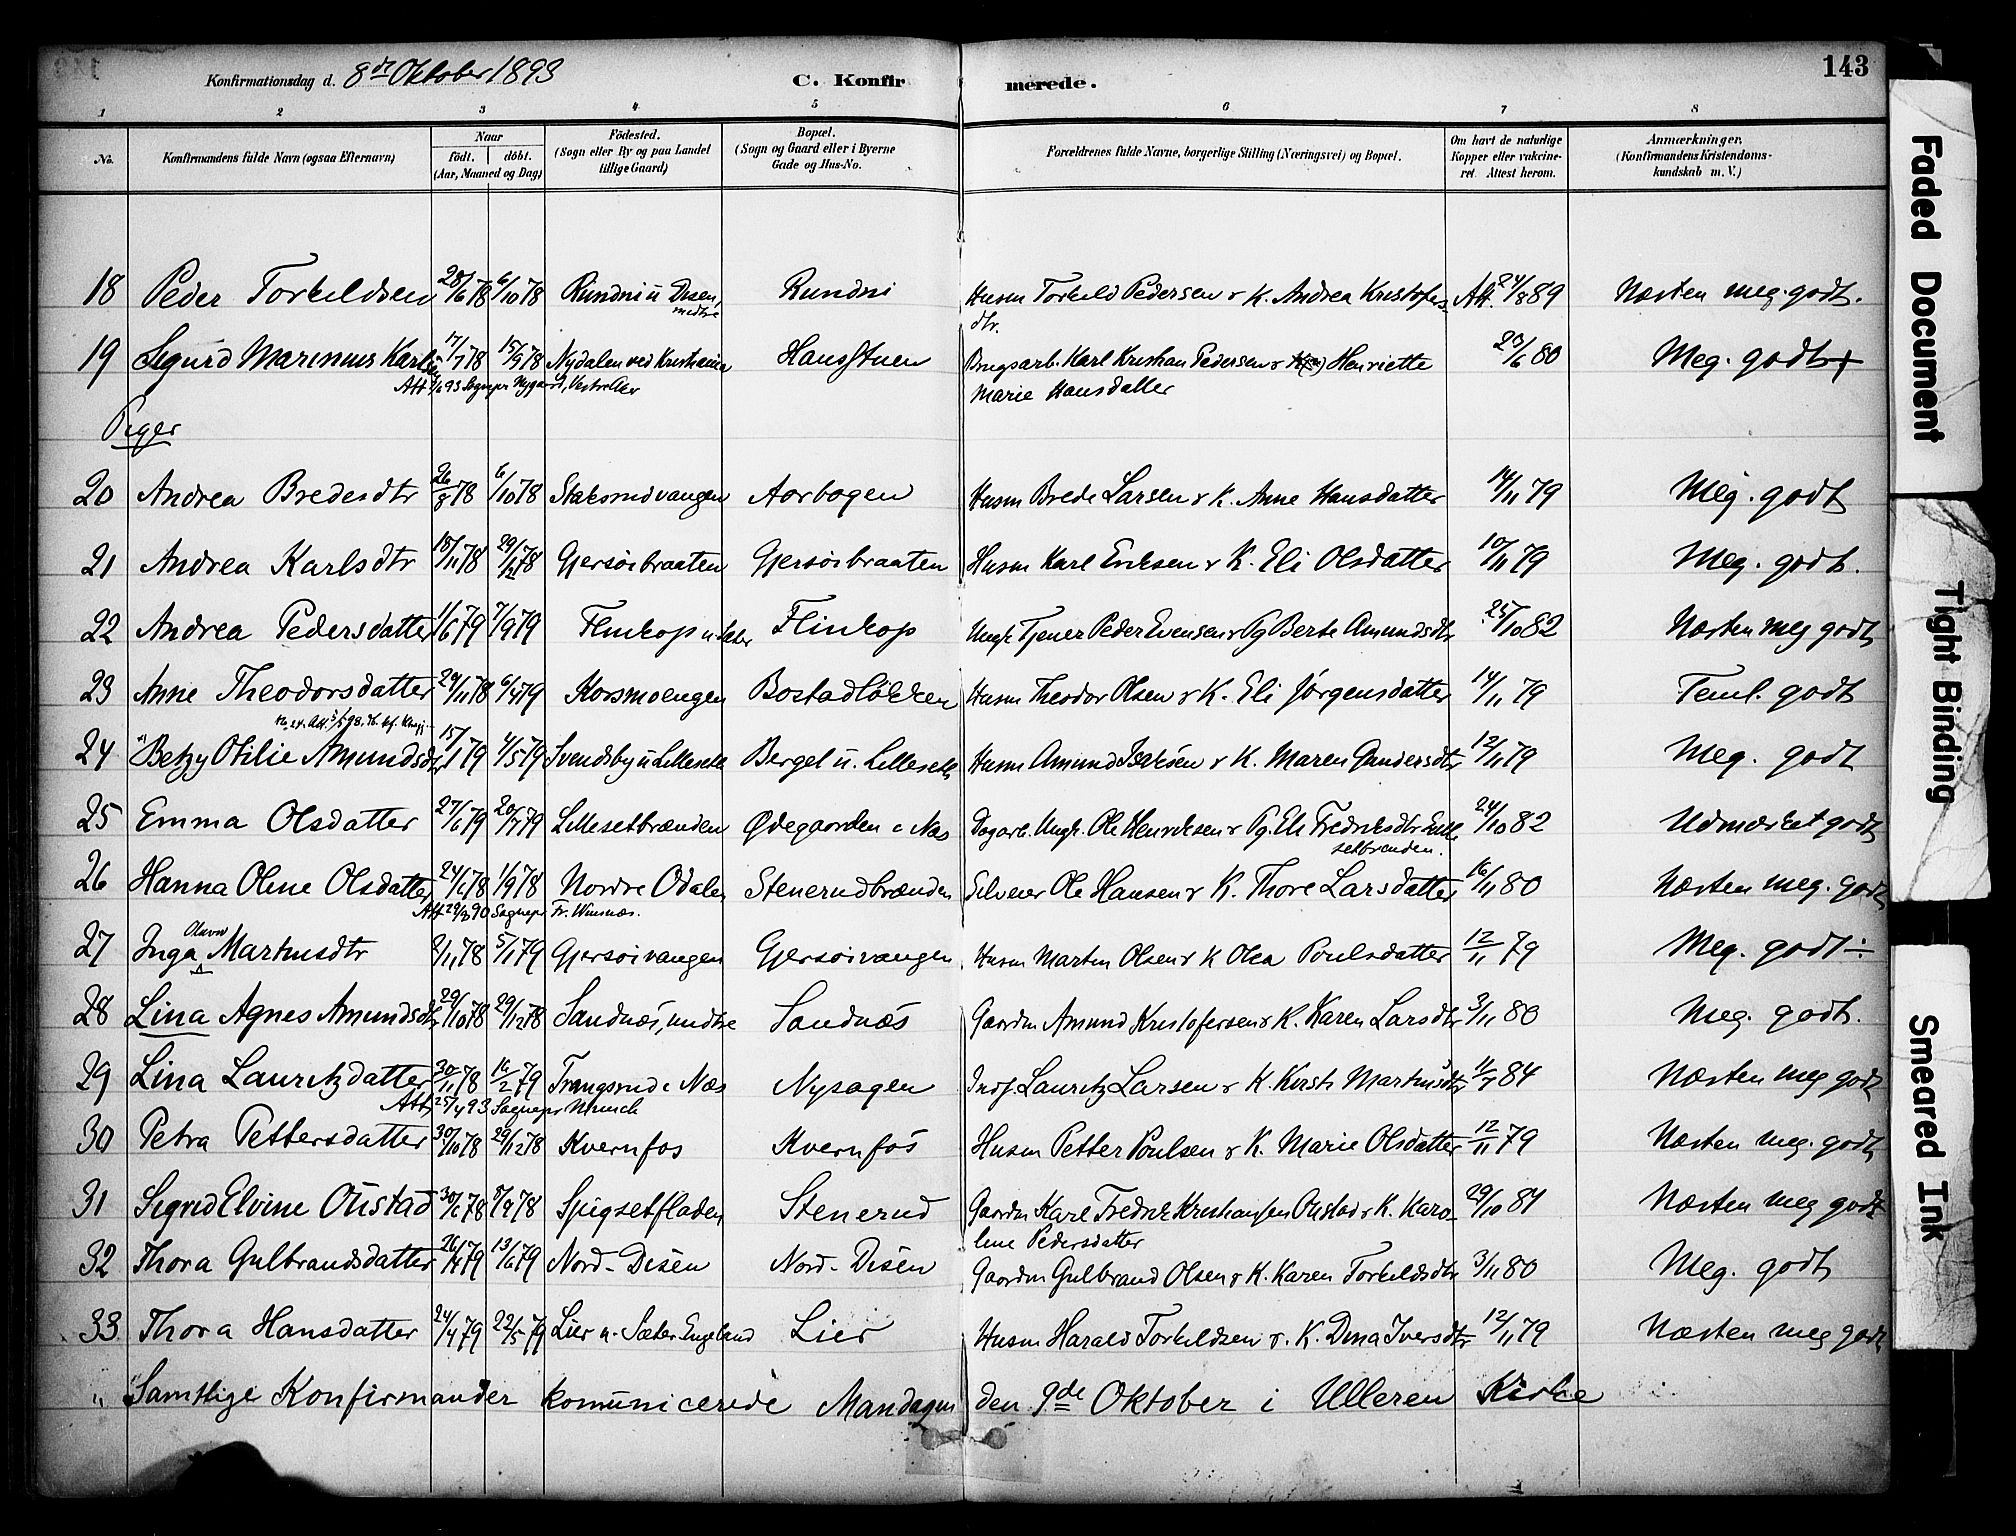 143
Konfirmationsdag d. 8de Oktober 1893
C. Konfirmerede.
1 2 3 4 5 6 7 8
No. Konfirmandens fulde Navn (ogsaa Efternavn) Naar født. døbt. (Aar, Maaned og Dag) Fødested. (Sogn eller By og paa Landet tillige Gaard) Bopæl. (Sogn og Gaard eller i Byerne Gade og Hus-No. Forældrenes fulde Navne, borgerlige Stilling (Næringsvei) og Bopæl. Om havt de naturlige Kopper eller vakcineret. Attest herom. Anmærkninger. (Konfirmandens Kristendomskundskab m. V.)
18 Peder Torkeldsen 28/6 78 6/10 78 Rundni u Disen, medtre Rundni Husm Torkeld Pedersen & K. Andrea Kristofers- Att. 24/8 89 Næsten meg. godt.
dtr.
19 Sigurd Marinius Karlsen 17/7 78 15/9 78 Nydalen ved Kristiania Hansstuen Brugsarb. Karl Kristian Pedersen & Henriette 23/6 80 Meg. godt +
Att 93 Sognepr Nygaard, Vestre Aker Marie Hansdatter
Piger
20 Andrea Bredesdtr 26/8 78 6/10 78 Staksrudvangen Aarbogen Husm Brede Larsen & K. Anne Hansdatter 14/11 79 Meg. godt
21 Andrea Karlsdtr 18/11 78 29/12 78 Gjersøibraaten Gjersøibraaten Husm Karl Eriksen & K. Eli Olsdatter 10/11 79 Meg. godt.
22 Andrea Pedersdatter 1/6 79 7/9 79 Flinkop u Sæter Flinkop Ungk. Tjener Peder Evensen & Pg Berte Amundsdtr 25/10 82 Næsten meg godt
23 Anne Theodorsdatter 29/11 78 6/4 79 Korsmoengen Bostadløkken Husm Theodor Olsen & K. Eli Jørgensdatter 14/11 79 Teml. godt
24 Betzy Otilie Amundsdtr 15/1 79 4/5 79 Svendsby u Lilleseth Berget u. Lilleseth Husm Amund Isaksen & K. Maren Gundersdtr 12/11 79 Meg. godt
25 Emma Olsdatter 27/6 79 20/7 79 Lillesetbrænden Ødegaarden i Næs Dagarb. Ungk. Ole Henriksen & Pg. Eli Fredriksdtr Lille- 24/10 82 Udmærket godt
setbrænden.
26 Hanna Oline Olsdatter 24/6 78 1/9 78 Nordre Odalen Stenerudbrænden Selveier Ole Hansen & K. Thore Larsdatter 16/11 80 Næsten meg. godt
Att 29/3 90 Sognepr Fr. Winsnæs.
27 Inga Olava Martinsdtr 2/11 78 5/1 79 Gjersøivangen Gjersøivangen Husm Martin Olsen & K Olea Poulsdatter 12/11 79 Meg. godt ÷
28 Lina Agnes Amundsdtr 29/10 78 29/12 78 Sandnæs, medtre Sandnæs Gaardm Amund Kristofersen & K. Karen Larsdtr 3/11 80 Meg. godt.
29 Lina Lauritzdatter 30/11 78 16/2 79 Trangsrud i Næs Nysagen Indf. Lauritz Larsen & K. Kirsti Martinsdtr 11/7 84 Næsten meg godt
Att 25/4 93 Sognepr Munch
30 Petra Pettersdatter 30/10 78 29/12 78 Kvernfos Kvernfos Husm Petter Poulsen & K. Marie Olsdatter 12/11 79 Næsten meg. godt
31 Sigrid Elvine Oustad 30/6 78 8/9 78 Spigsetfladen Stenerud Gaardm Karl Fredrik Kristiansen Oustad & K. Karo- 29/10 84 Næsten meg godt
line Pedersdatter
32 Thora Gulbrandsdatter 26/4 79 13/6 79 Nord-Disen Nord-Disen Gaardm Gulbrand Olsen & K. Karen Torkeldsdtr 3/11 80 Meg. godt
33 Thora Hansdatter 24/4 79 22/5 79 Lier u. Sæter Engeland Lier Husm Harald Torkeldsen & K. Dina Iversdtr 12/11 79 Næsten meg godt
" Samtlige Konfirmander komunicerede Mandagen den 9de Oktober i Ulleren Kirke
Faded Document
Tight Binding
Smeared Ink